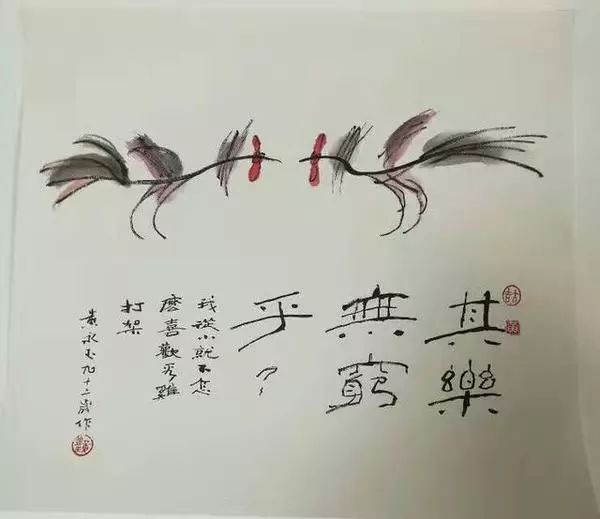 其樂
無窮
乎？？
我從小就不怎
麼喜歡看雞
打架
黃永玉九十二歲作